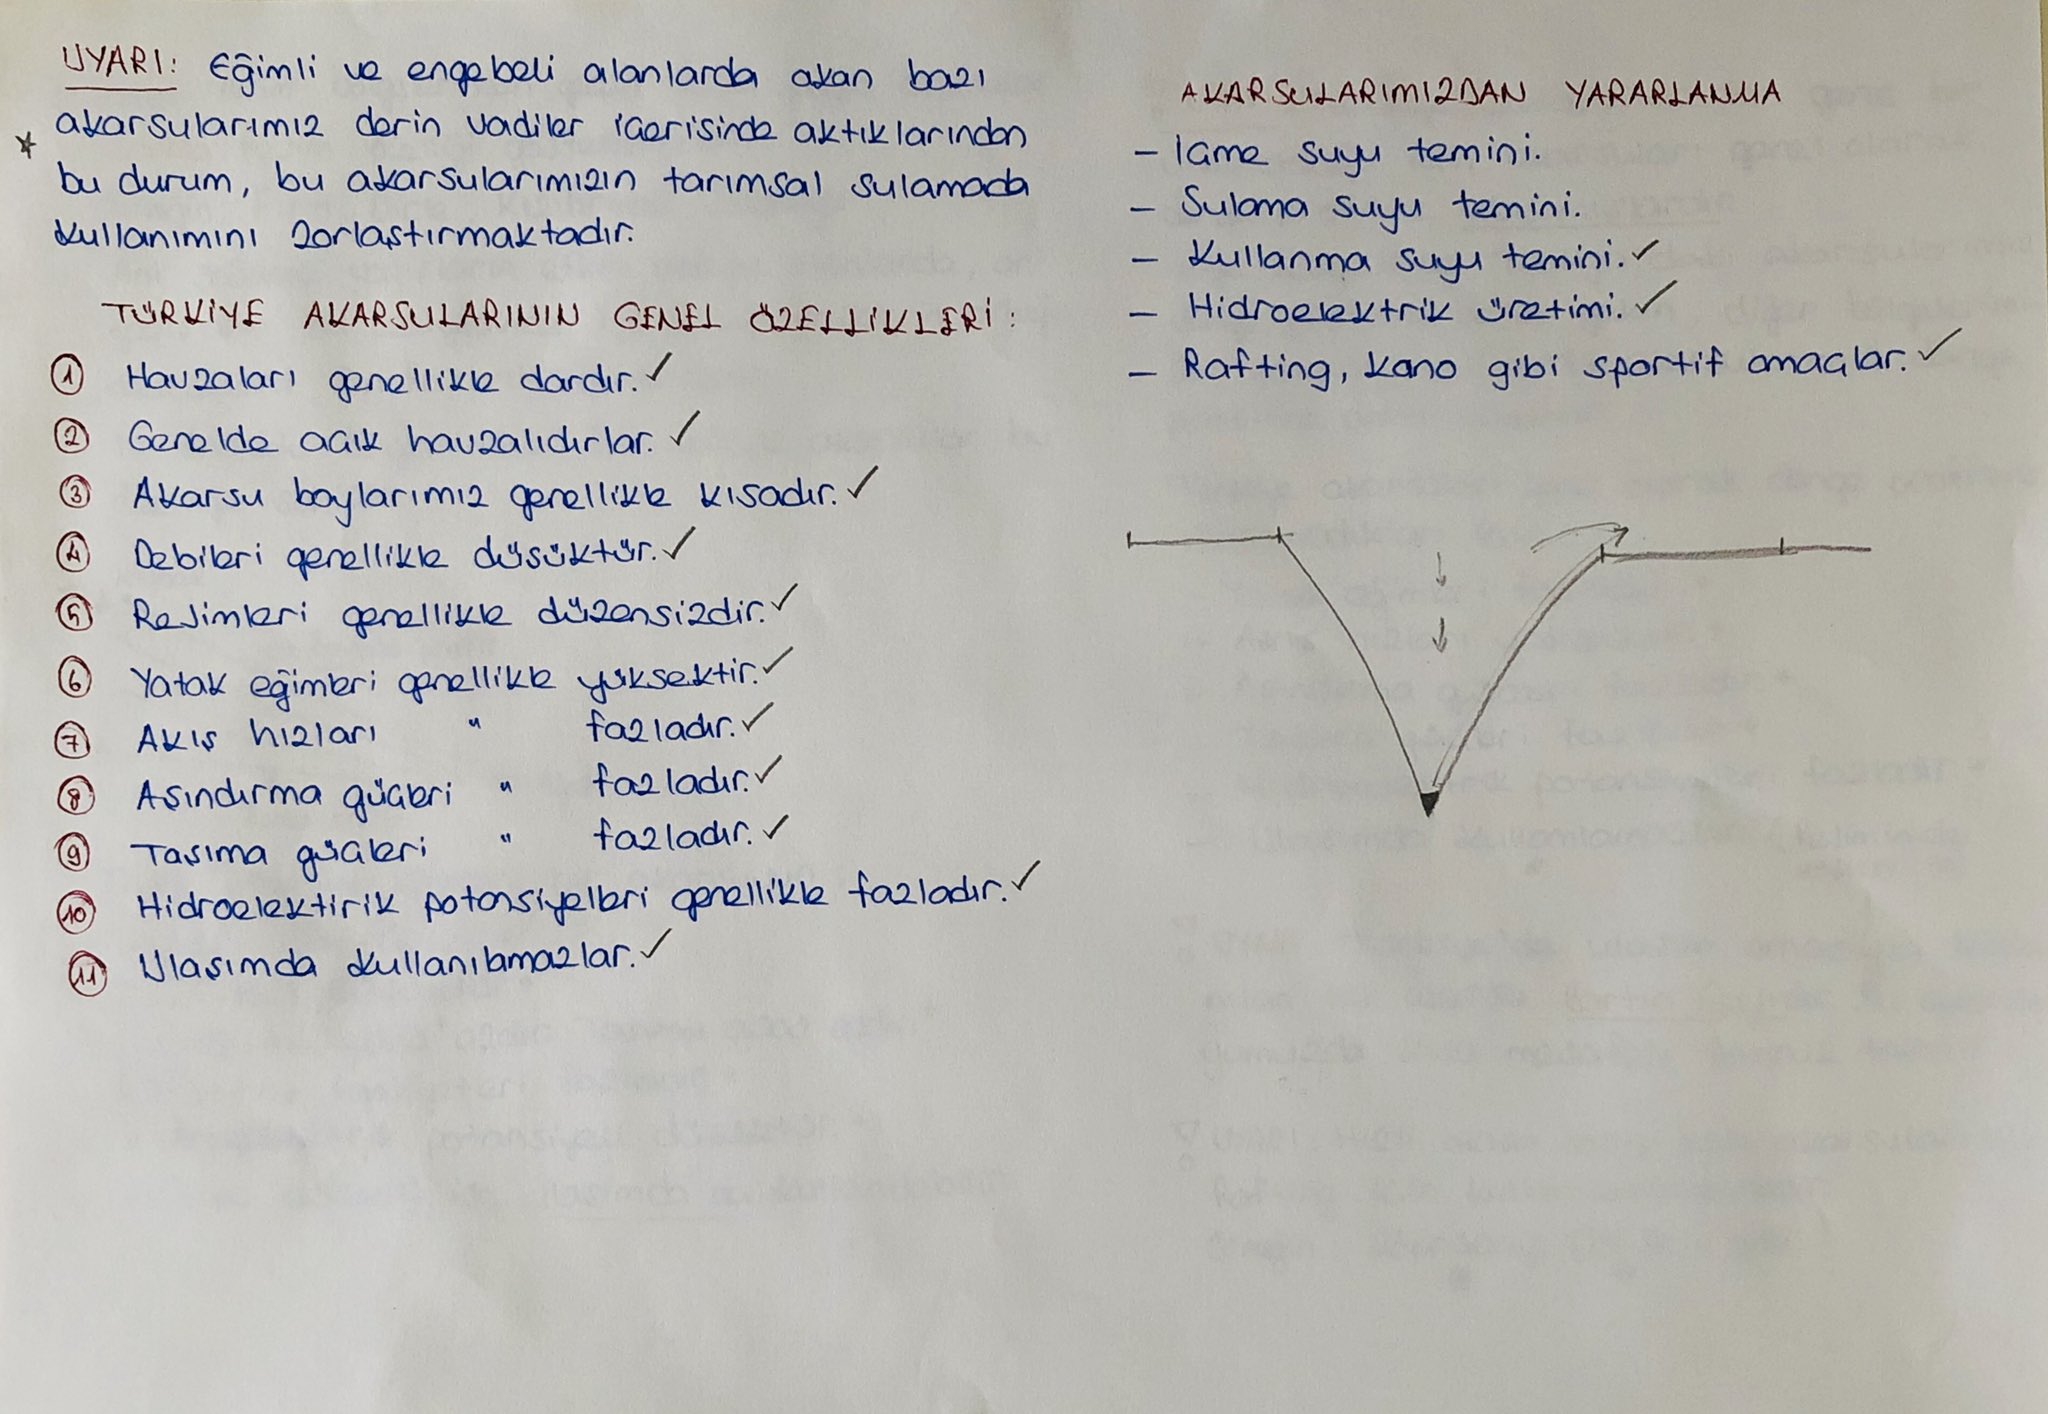 UYARI: Eğimli ve engebeli alanlarda akan bazı
akarsularımız derin vadiler içerisinde aktıklarından
bu durum, bu akarsularımızın tarımsal sulamada
kullanımını zorlaştırmaktadır.
TÜRKİYE AKARSULARININ GENEL ÖZELLİKLERİ:
1 Havzaları genellikle dardır. ✓
2 Genelde açık havzalıdırlar. ✓
3 Akarsu boylarımız genellikle kısadır. ✓
4 Debileri genellikle düşüktür. ✓
5 Rejimleri genellikle düzensizdir. ✓
6 Yatak eğimleri genellikle yüksektir. ✓
7 Akış hızları " fazladır. ✓
8 Aşındırma güçleri " fazladır. ✓
9 Taşıma güçleri " fazladır. ✓
10 Hidroelektirik potansiyelleri genellikle fazladır. ✓
11 Ulaşımda kullanılamazlar. ✓
AKARSULARIMIZDAN YARARLANMA
- İçme suyu temini.
- Sulama suyu temini.
- Kullanma suyu temini. ✓
- Hidroelektrik üretimi. ✓
- Rafting, kano gibi sportif amaçlar. ✓